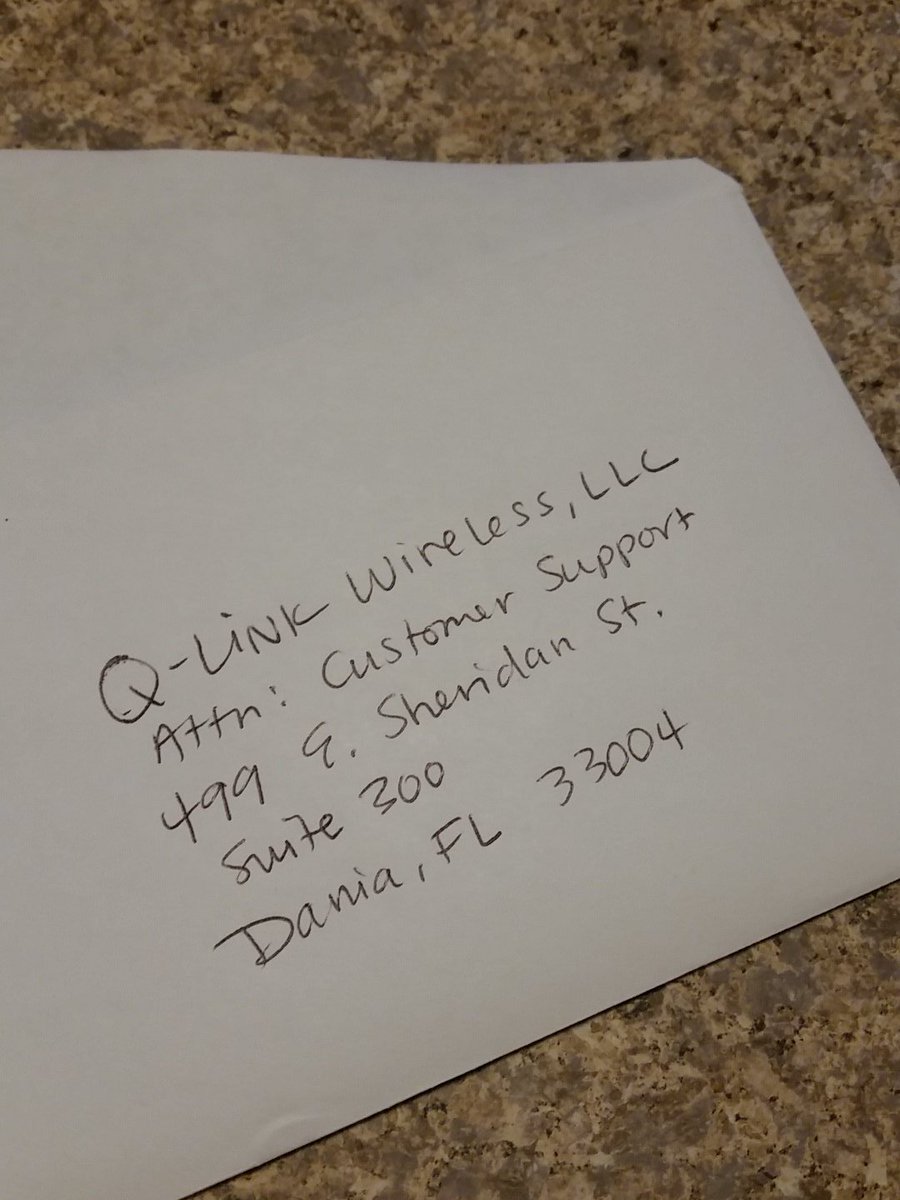 Q-LINK Wireless, LLC
Attn: Customer Support
499 E. Sheridan St.
Suite 300
Dania, FL 33004